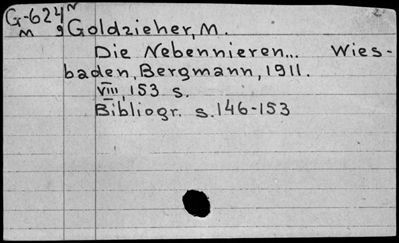 G-624 N
M 9 Goldzieher, M.
Die Nebennieren... Wies-
baden, Bergmann, 1911.
VIII, 153 s.
Bibliogr. s. 146-153